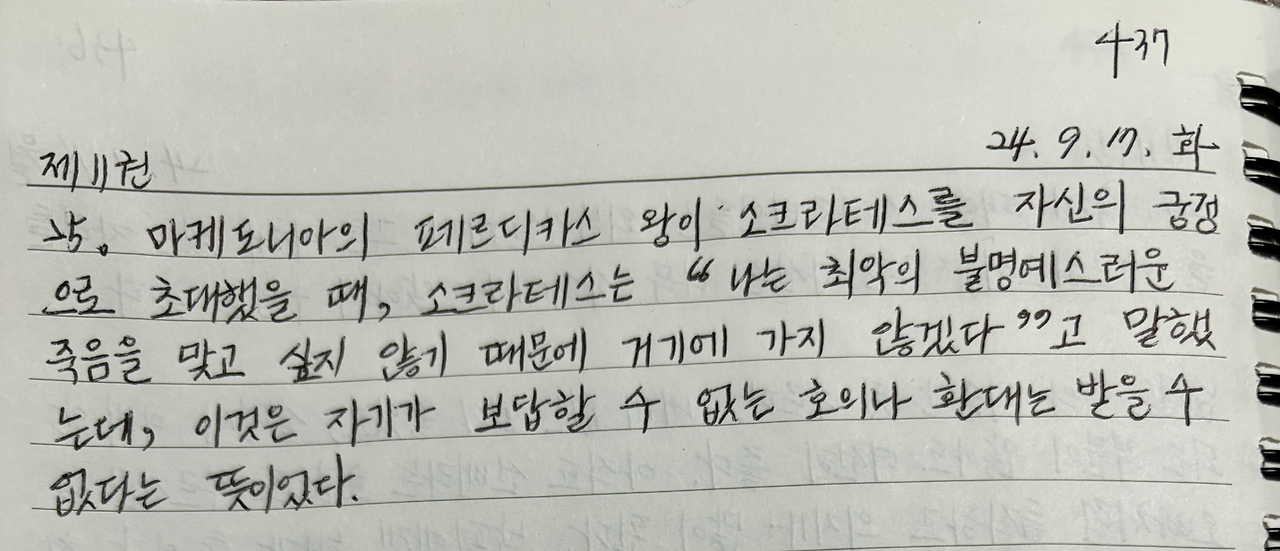 437
24. 9. 17. 화
제11권
25. 마케도니아의 페르디카스 왕이 소크라테스를 자신의 궁정
으로 초대했을 때, 소크라테스는 “나는 최악의 불명예스러운
죽음을 맞고 싶지 않기 때문에 거기에 가지 않겠다”고 말했
는데, 이것은 자기가 보답할 수 없는 호의나 환대는 받을 수
없다는 뜻이었다.